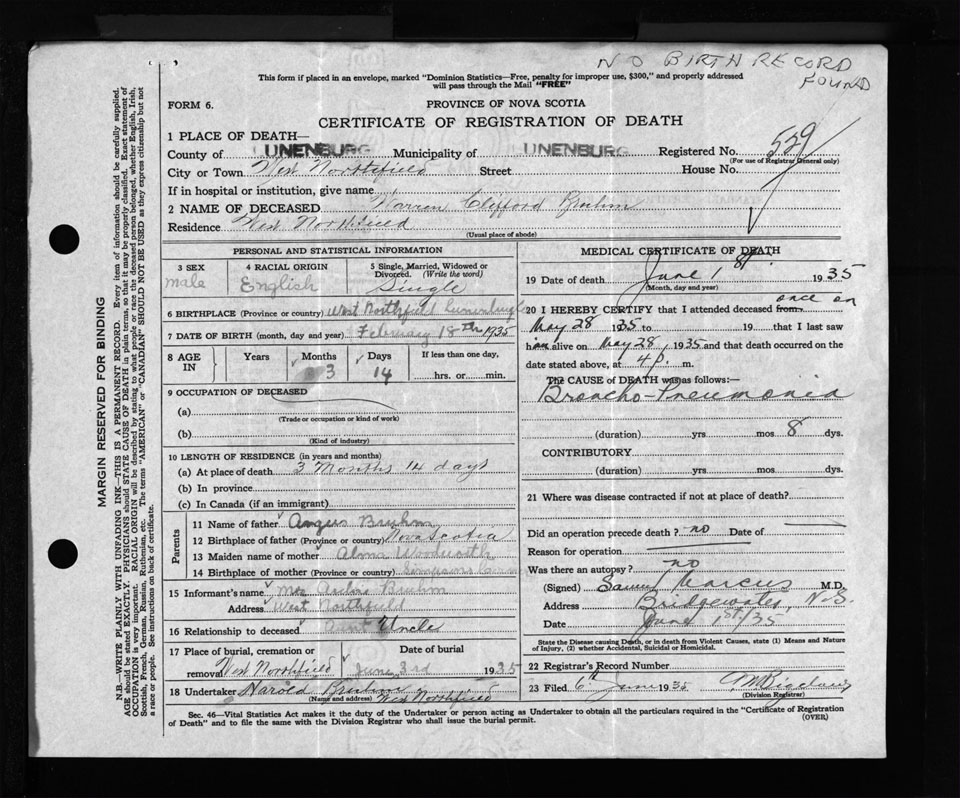 NO BIRTH RECORD
FOUND
This form if placed in an envelope, marked "Dominion Statistics—Free, penalty for improper use, $300," and properly addressed
will pass through the Mail "FREE"
FORM 6.
PROVINCE OF NOVA SCOTIA
CERTIFICATE OF REGISTRATION OF DEATH
1 PLACE OF DEATH—
County of LUNENBURG Municipality of LUNENBURG Registered No. 529
(For use of Registrar General only)
City or Town West Northfield Street House No.
If in hospital or institution, give name
2 NAME OF DECEASED Warren Clifford Bruhm
Residence West Northfield
(Usual place of abode)
PERSONAL AND STATISTICAL INFORMATION
3 SEX male
4 RACIAL ORIGIN English
5 Single, Married, Widowed or Divorced. (Write the word) Single
6 BIRTHPLACE (Province or country) West Northfield
7 DATE OF BIRTH (month, day and year) February 18th 1935
8 AGE IN Years Months 3 Days 14 If less than one day, hrs. or min.
9 OCCUPATION OF DECEASED
(a)
(Trade or occupation or kind of work)
(b)
(Kind of industry)
10 LENGTH OF RESIDENCE (in years and months)
(a) At place of death 3 Months 14 days
(b) In province
(c) In Canada (if an immigrant)
Parents
11 Name of father Angus Bruhm
12 Birthplace of father (Province or country) Nova Scotia
13 Maiden name of mother
14 Birthplace of mother (Province or country)
15 Informant's name Bruhm
Address West Northfield
16 Relationship to deceased Aunt Uncle
17 Place of burial, cremation or removal West Northfield
Date of burial June 3rd 1935
18 Undertaker Harold Bruhm West Northfield
(Name and address)
MEDICAL CERTIFICATE OF DEATH
19 Date of death June 1st 1935
(Month, day and year)
once on
20 I HEREBY CERTIFY that I attended deceased from
May 28 1935 to 19 that I last saw
him alive on May 28, 1935 and that death occurred on the
date stated above, at 4 p. m.
The CAUSE of DEATH was as follows:—
Broncho-Pneumonia
(duration) yrs mos 8 dys.
CONTRIBUTORY
(duration) yrs mos. dys.
21 Where was disease contracted if not at place of death?
Did an operation precede death? no Date of
Reason for operation
Was there an autopsy? no
(Signed) Marcus M.D.
Address Bridgewater, N.S.
Date June 1st/35
State the Disease causing Death, or in death from Violent Causes, state (1) Means and Nature
of Injury, (2) whether Accidental, Suicidal or Homicidal.
22 Registrar's Record Number
23 Filed 6th June 1935
(Division Registrar)
Sec. 46—Vital Statistics Act makes it the duty of the Undertaker or person acting as Undertaker to obtain all the particulars required in the "Certificate of Registration
of Death" and to file the same with the Division Registrar who shall issue the burial permit.
(OVER)
MARGIN RESERVED FOR BINDING
N.B.—WRITE PLAINLY WITH UNFADING INK—THIS IS A PERMANENT RECORD. Every item of information should be carefully supplied.
AGE should be stated EXACTLY. PHYSICIANS should STATE CAUSE OF DEATH in plain terms, so that it may be properly classified. Exact statement of
OCCUPATION is very important. RACIAL ORIGIN will be described by stating to what people or race the deceased person belonged, whether English, Irish,
Scottish, French, German, Russian, Ruthenian, etc. The terms "AMERICAN" or "CANADIAN" SHOULD NOT BE USED as they express citizenship but not
a race or people. See instructions on back of certificate.